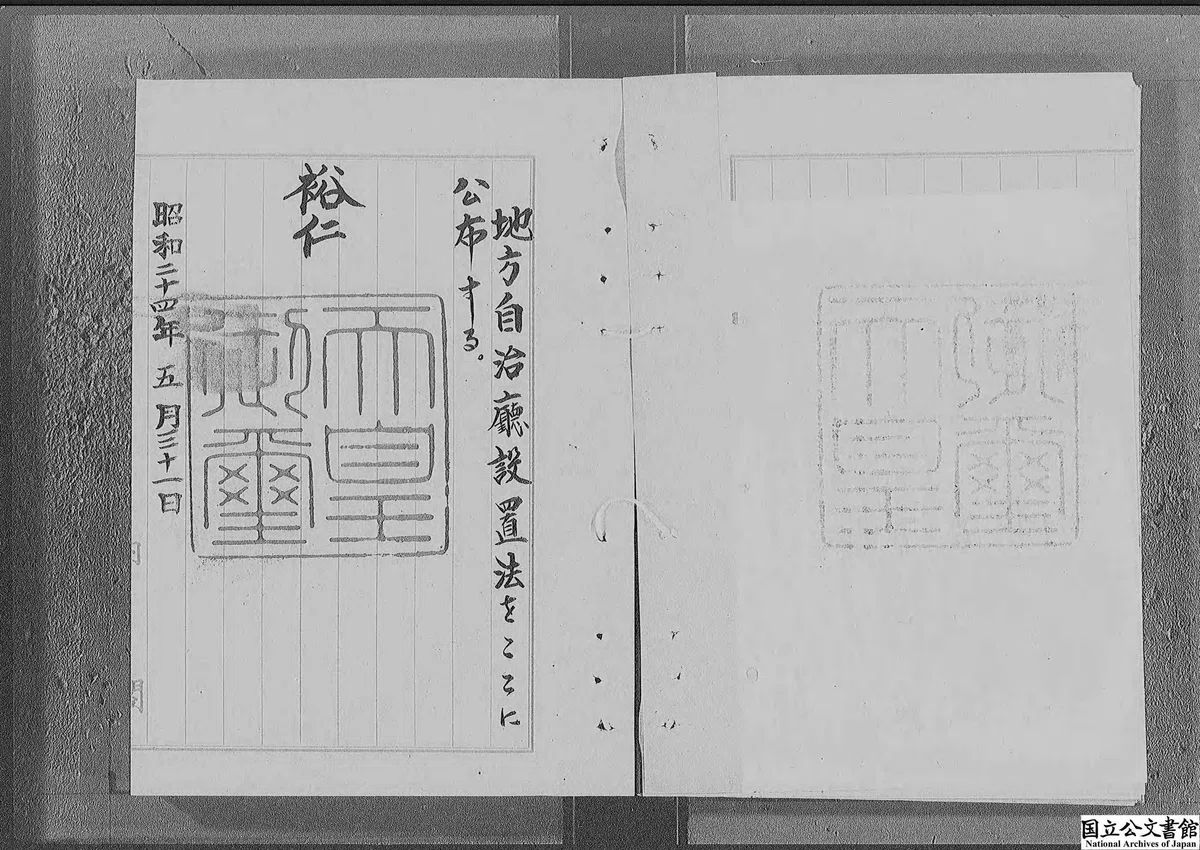 地方自治廳設置法をここに
公布する。
裕仁
天皇
御璽
昭和二十四年五月三十一日
国立公文書館
National Archives of Japan